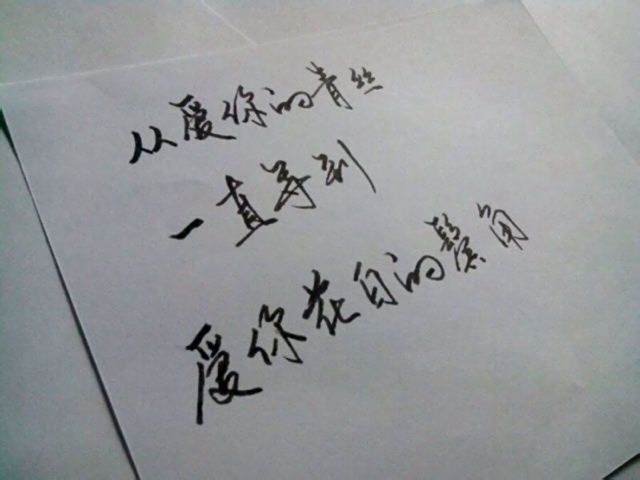 从爱你的青丝
一直等到
爱你花白的鬓角